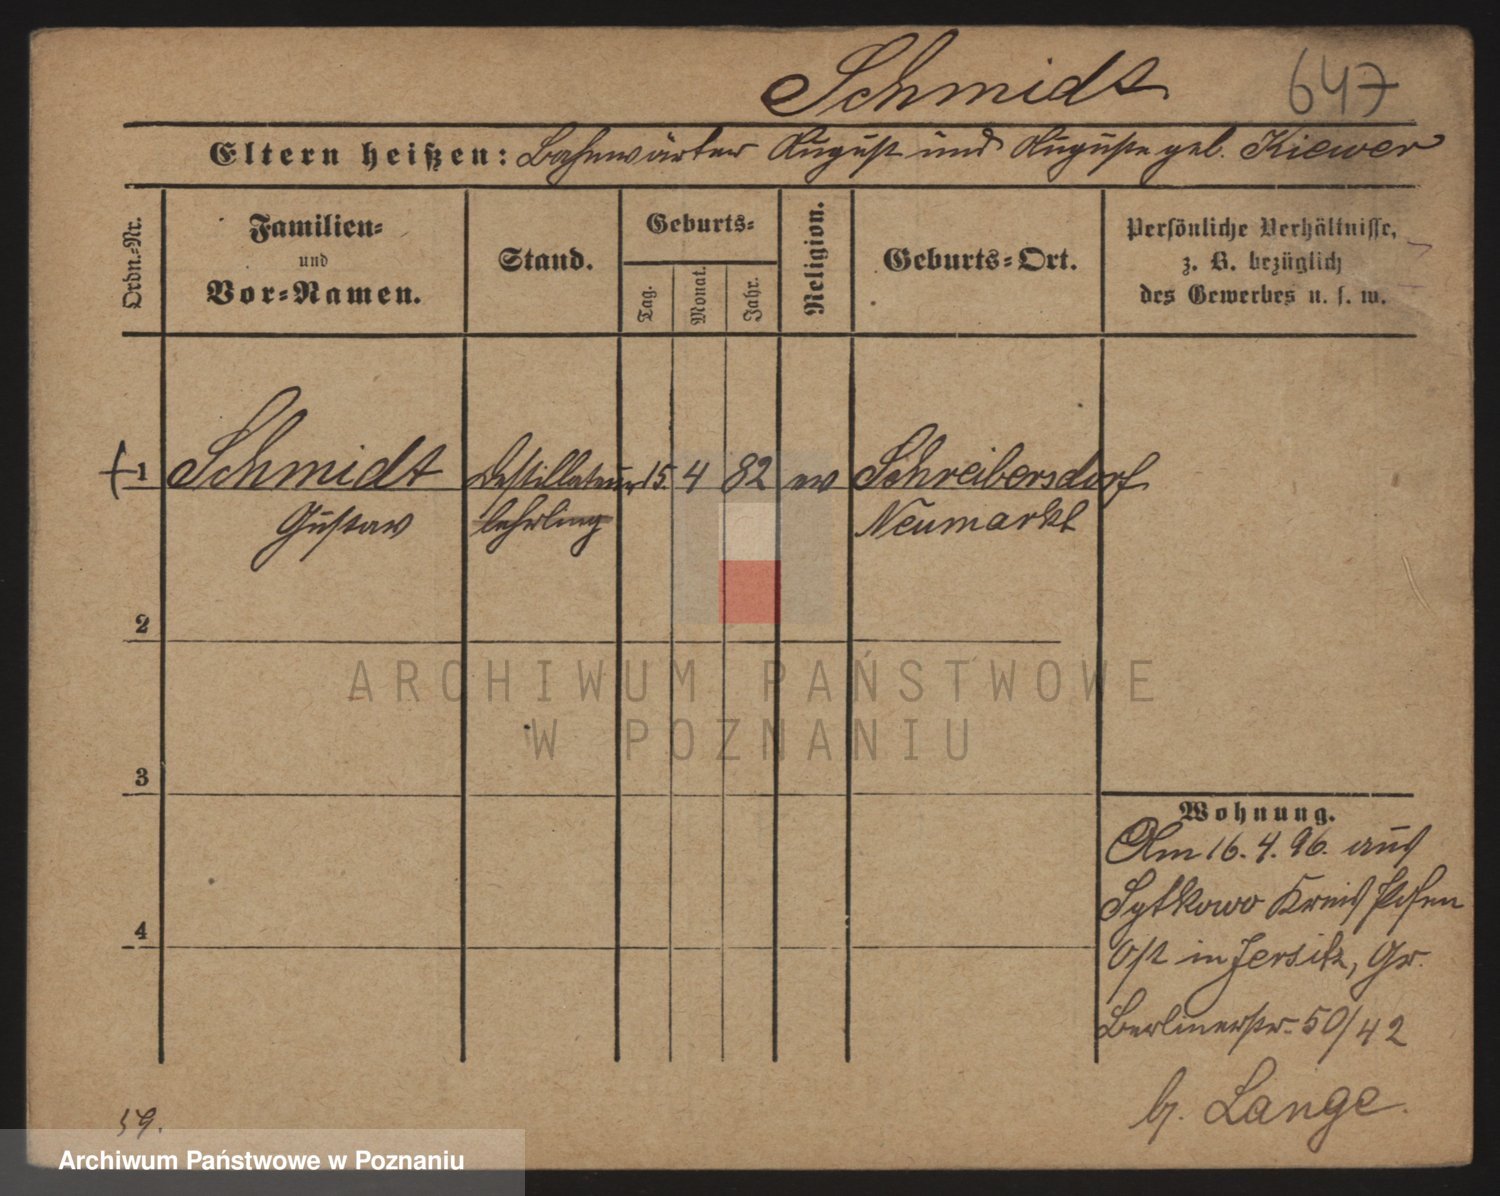 Schmidt 647
Eltern heißen: Bahnwärter August und Auguste geb. Kiewer
Ordn.-Nr.
Familien-
und
Vor-Namen.
Stand.
Geburts-
Tag.
Monat.
Jahr.
Religion.
Geburts-Ort.
Persönliche Verhältnisse,
z. B. bezüglich
des Gewerbes u. s. w.
1 Schmidt Destillateur 15. 4 82 ev Schreibersdorf
Gustav lehrling Neumarkt
2
ARCHIWUM PAŃSTWOWE
W POZNANIU
3
Wohnung.
Am 16. 4. 96. aus
Sytkowo Kreis Posen
Ost in Jersitz, Gr.
4
Berlinerstr. 50/42
b. Lange.
59.
Archiwum Państwowe w Poznaniu